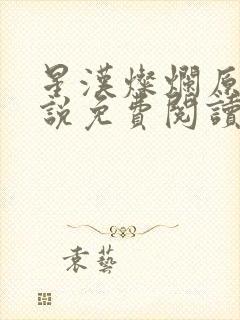 星漢燦爛原
說免費閱讀
袁藝